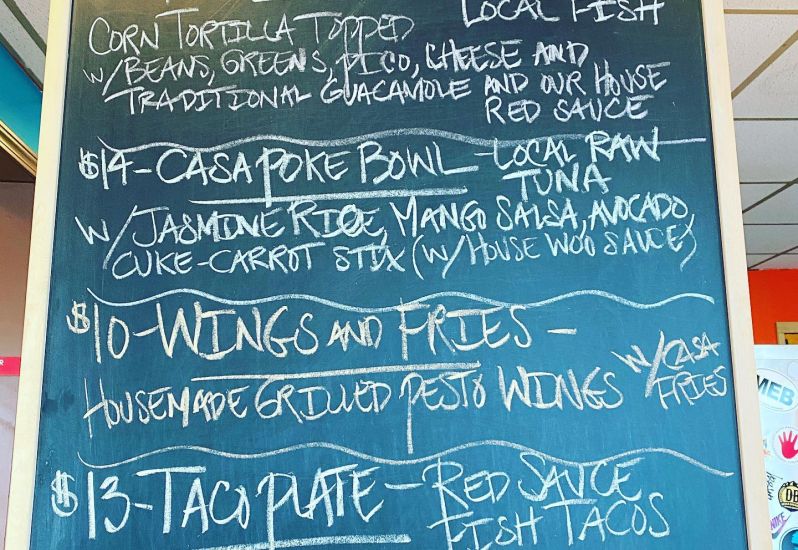 LOCAL FISH
CORN TORTILLA TOPPED
W/BEANS, GREENS, PICO, CHEESE AND
TRADITIONAL GUACAMOLE AND OUR HOUSE
RED SAUCE
$14-CASA POKE BOWL - LOCAL RAW
TUNA
W/JASMINE RICE, MANGO SALSA, AVOCADO,
CUKE-CARROT STIX (W/HOUSE WOO SAUCE)
$10-WINGS AND FRIES -
HOUSEMADE GRILLED PESTO WINGS W/CASA
FRIES
$13-TACO PLATE - RED SAUCE
FISH TACOS
MEB